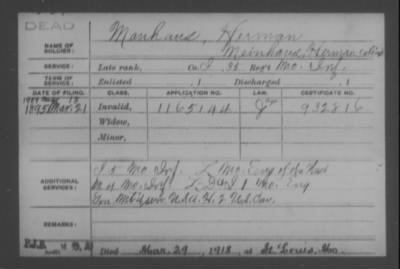 DEAD
NAME OF SOLDIER: Manhaus, Herman
Meinhaus, Herman
SERVICE: Late rank, Co. I, 35 Reg't Mo. Inf.
TERM OF SERVICE: Enlisted , 1 Discharged , 1
DATE OF FILING. CLASS. APPLICATION NO. LAW. CERTIFICATE NO.
1895 Mar. 21 Invalid, 1165144 932816
Widow,
Minor,
ADDITIONAL SERVICES: I 5 Mo. Inf. L Mo. Eng
Mo. Inf. L I Mo. Eng
U.S.A. H. 2 U.S. Cav.
REMARKS:
Died Mar. 29, 1918, at St. Louis, Mo.